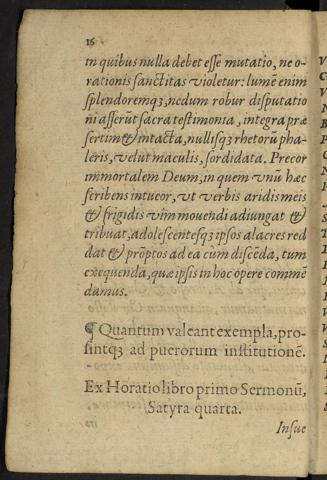 16
in quibus nulla debet esse mutatio, ne o-
rationis sanctitas violetur: lumẽ enim
splendoremqꝫ, nedum robur disputatio
ni afferũt sacra testimonia, integra præ
sertim & intacta, nullisqꝫ rhetorũ pha-
leris, velut maculis, sordidata. Precor
immortalem Deum, in quem vnũ hæc
scribens intueor, vt verbis aridis meis
& frigidis vim mouendi adiungat &
tribuat, adolescentesqꝫ ipsos alacres red
dat & prõptos ad ea cum discẽda, tum
exequenda, quæ ipsis in hoc opere commẽ
damus.
¶ Quantum valeant exempla, pro-
sintqꝫ ad puerorum institutionẽ.
Ex Horatio libro primo Sermonũ,
Satyra quarta.
Insue